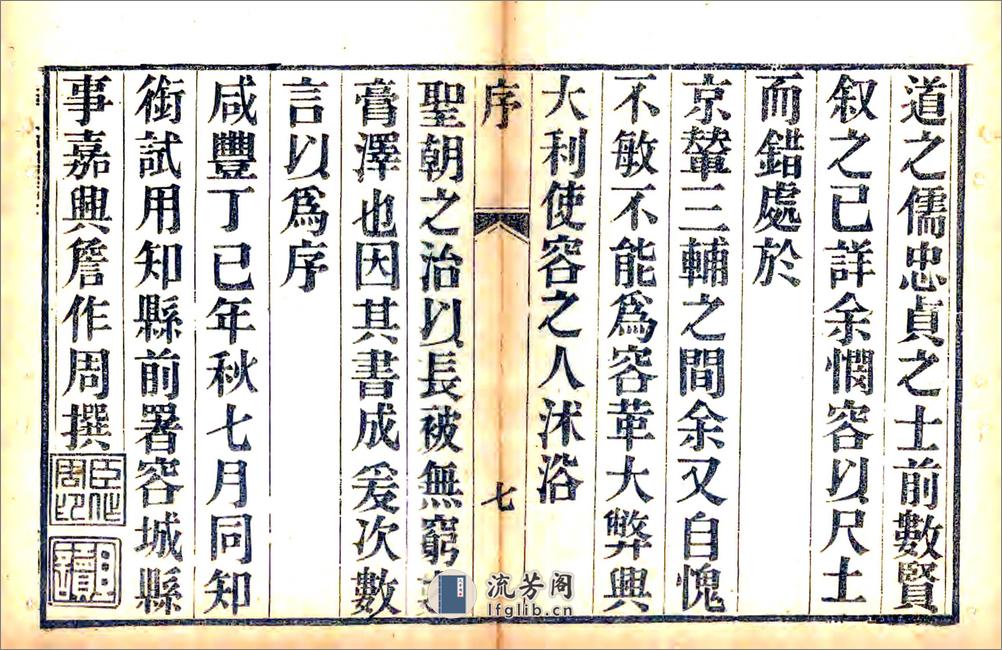 道之儒忠貞之士前數賢
叙之已詳余憫容以尺土
而錯處於
京輦三輔之間余又自愧
不敏不能爲容革大弊興
大利使容之人沭浴
序
七
聖朝之治以長被無窮
膏澤也因其書成爰次數
言以爲序
咸豐丁巳年秋七月同知
銜試用知縣前署容城縣
事嘉興詹作周撰
臣作周印
流芳阁
lfglib.cn